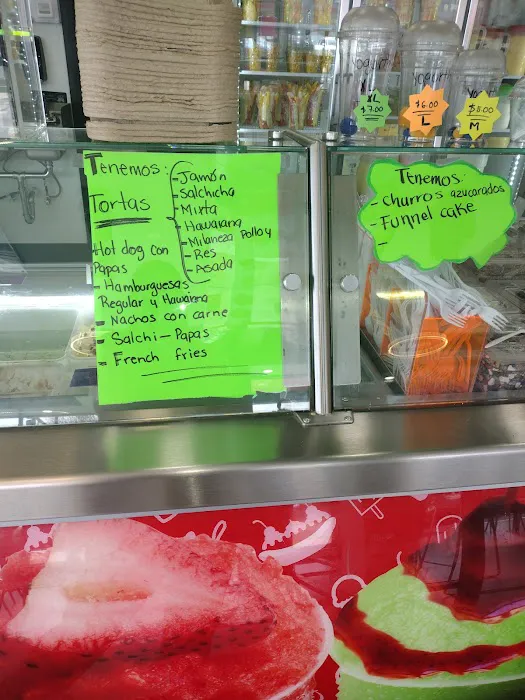 yogurt
XL
$7.00
yogurt
$6.00
L
$5.00
M
Tenemos:
Tortas
-Jamón
-Salchicha
-Mixta
-Hawaiana
-Milaneza Pollo y
-Res
-Asada
Hot dog con
Papas
- Hamburguesas
Regular y Hawaiana
- Nachos con carne
- Salchi-Papas
- French fries
Tenemos:
- churros azucarados
- Funnel cake
-